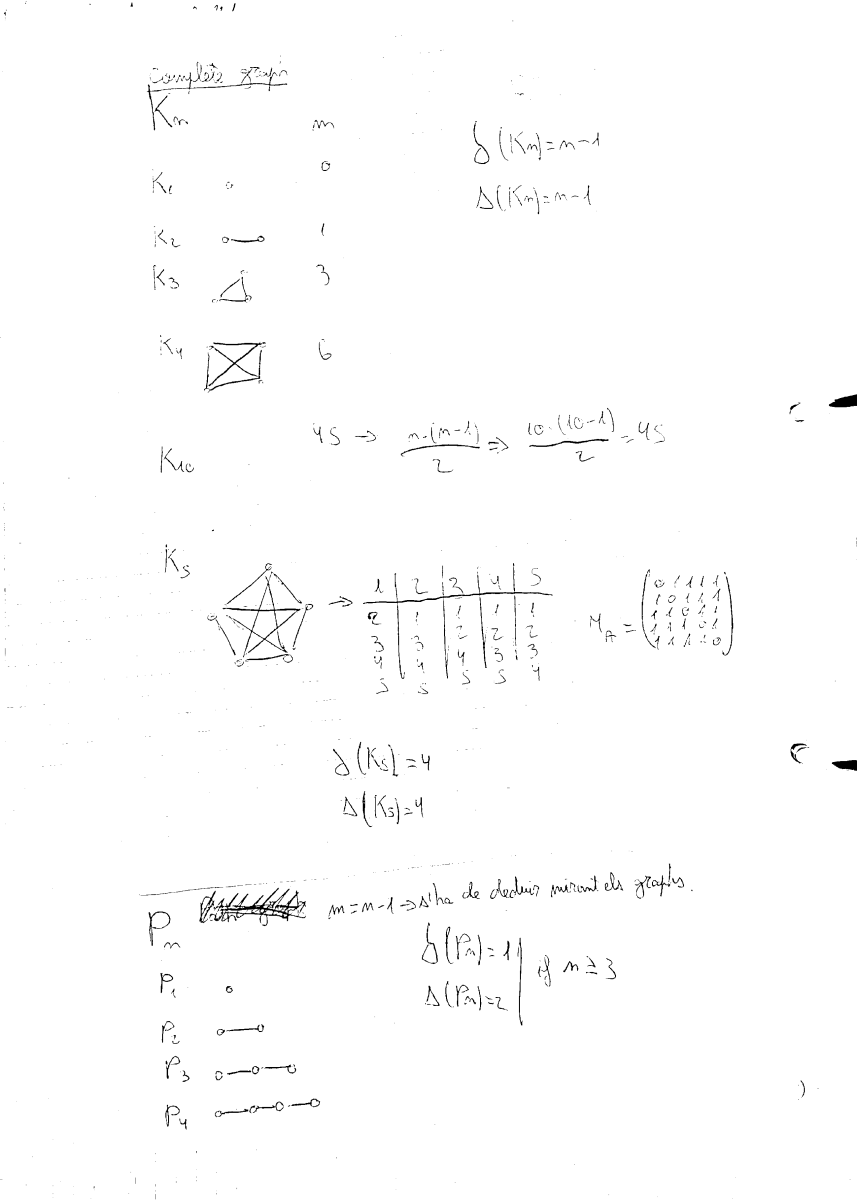 Complete graph
Kn m δ(Kn)=n-1
K1 0 Δ(Kn)=n-1
K2 1
K3 3
K4 6
K10 45 → n·(n-1)/2 ⇒ 10·(10-1)/2 = 45
K5 → 1 | 2 | 3 | 4 | 5
2 | 1 | 1 | 1 | 1
3 | 3 | 2 | 2 | 2
4 | 4 | 4 | 3 | 3
5 | 5 | 5 | 5 | 4
M_A =
0 1 1 1 1
1 0 1 1 1
1 1 0 1 1
1 1 1 0 1
1 1 1 1 0
δ(K5)=4
Δ(K5)=4
Pn m=n-1 → s'ha de deduir mirant els graphs.
δ(Pn)=1
Δ(Pn)=2 if n≥3
P1
P2
P3
P4